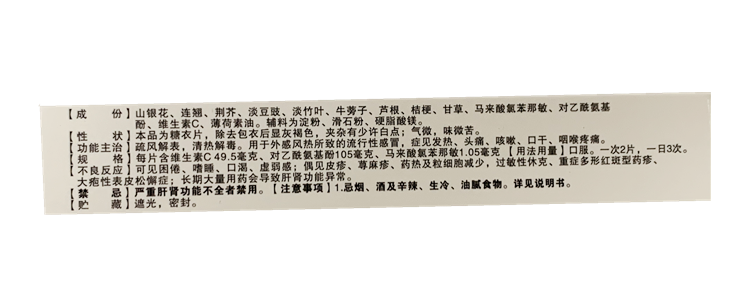 【成 份】山银花、连翘、荆芥、淡豆豉、淡竹叶、牛蒡子、芦根、桔梗、甘草、马来酸氯苯那敏、对乙酰氨基
酚、维生素C、薄荷素油。辅料为淀粉、滑石粉、硬脂酸镁。
【性 状】本品为糖衣片，除去包衣后显灰褐色，夹杂有少许白点；气微，味微苦。
【功能主治】疏风解表，清热解毒。用于外感风热所致的流行性感冒，症见发热、头痛、咳嗽、口干、咽喉疼痛。
【规 格】每片含维生素C 49.5毫克、对乙酰氨基酚105毫克、马来酸氯苯那敏1.05毫克【用法用量】口服。一次2片，一日3次。
【不良反应】可见困倦、嗜睡、口渴、虚弱感；偶见皮疹、荨麻疹、药热及粒细胞减少，过敏性休克、重症多形红斑型药疹、
大疱性表皮松懈症；长期大量用药会导致肝肾功能异常。
【禁 忌】严重肝肾功能不全者禁用。【注意事项】1.忌烟、酒及辛辣、生冷、油腻食物。详见说明书。
【贮 藏】遮光，密封。